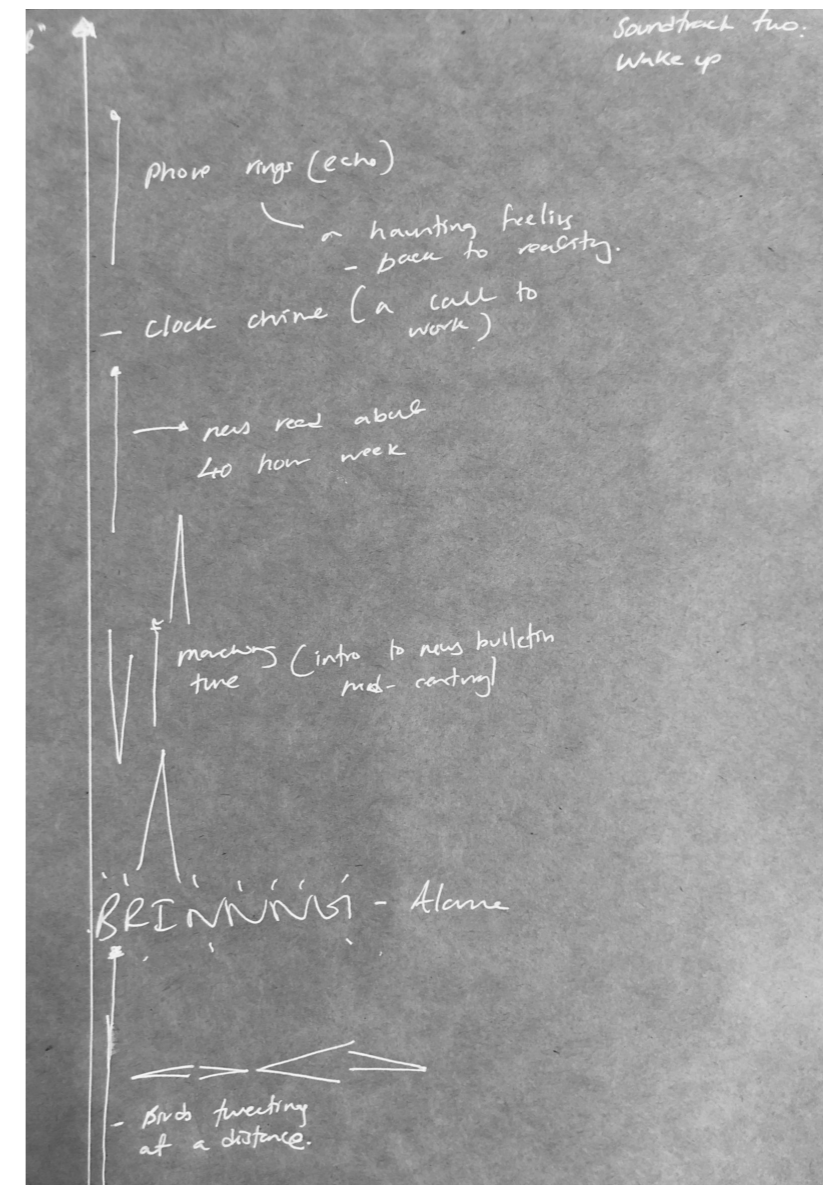 Soundtrack two:
Wake up
Phone rings (echo)
a haunting feeling
- back to reality.
- Clock chime (a call to
work)
news read about
40 hour week
marching (intro to news bulletin
tune mid-century)
BRINNNNG - Alarm
- Birds tweeting
at a distance.